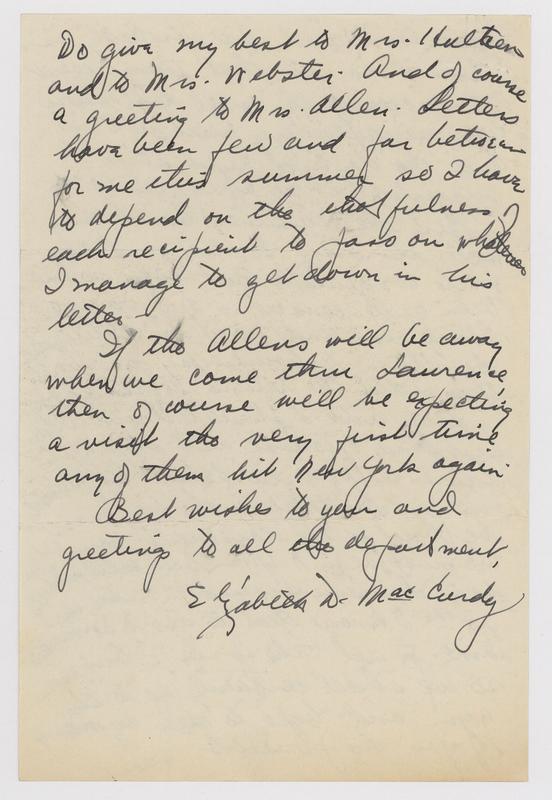 Do give my best to Mrs. Hulteen
and to Mrs. Webster. And of course
a greeting to Mrs. Allen. Letters
have been few and far between
for me this summer so I have
to depend on the fulness of
each recipient to pass on whatever
I manage to get down in his
letter.
If the Allens will be away
when we come thru Lawrence,
then of course we'll be expecting
a visit the very first time
any of them hit New York again.
Best wishes to you and
greetings to all the department,
Elizabeth D. MacCurdy